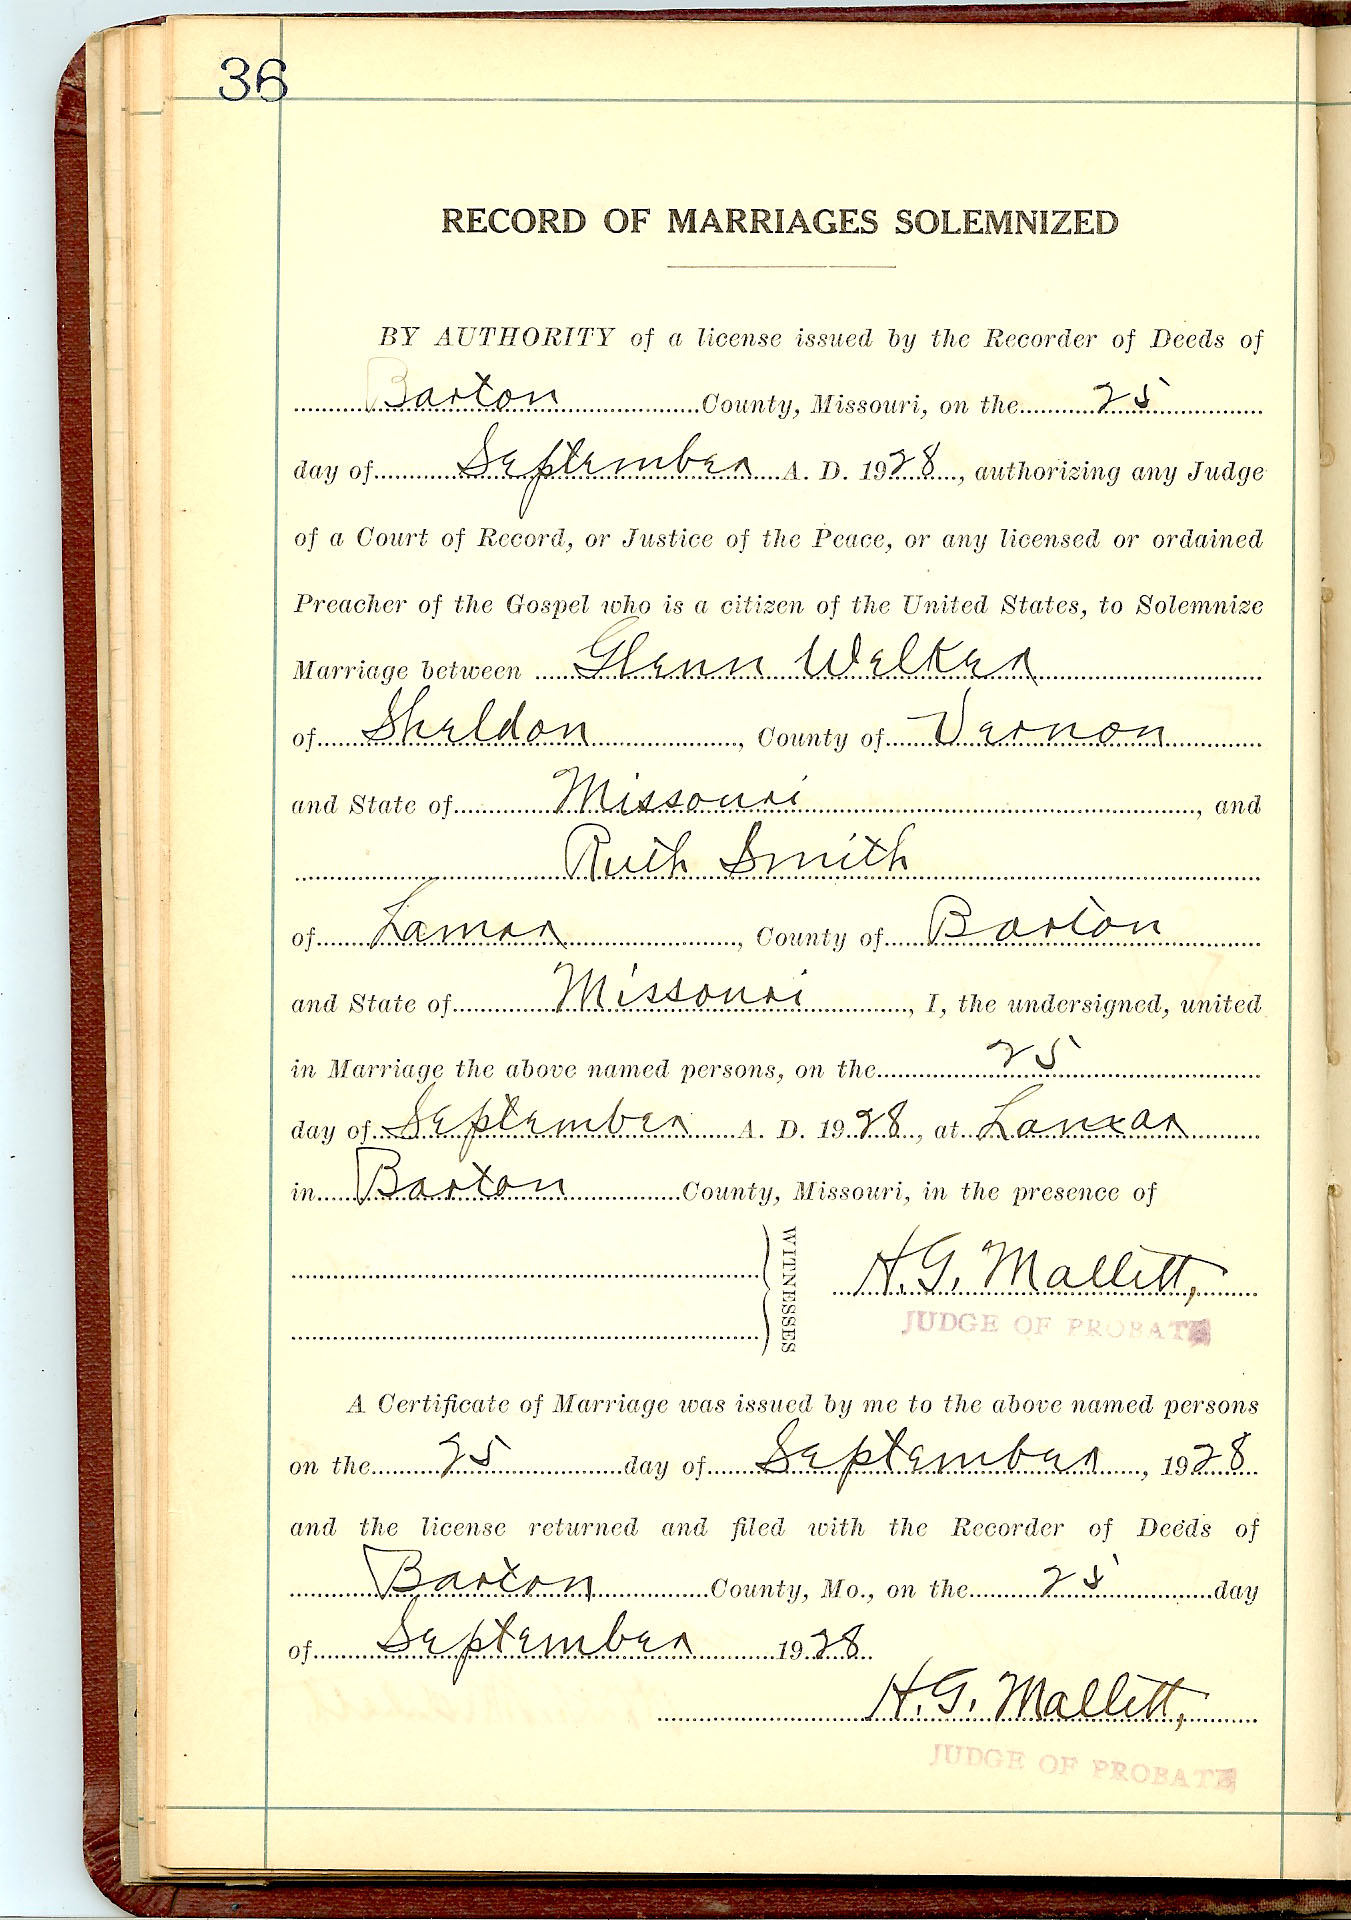 36
RECORD OF MARRIAGES SOLEMNIZED
BY AUTHORITY of a license issued by the Recorder of Deeds of
Barton County, Missouri, on the 25
day of September A. D. 1928, authorizing any Judge
of a Court of Record, or Justice of the Peace, or any licensed or ordained
Preacher of the Gospel who is a citizen of the United States, to Solemnize
Marriage between Glenn Welker
of Sheldon, County of Vernon
and State of Missouri, and
Ruth Smith
of Lamar, County of Barton
and State of Missouri, I, the undersigned, united
in Marriage the above named persons, on the 25
day of September A. D. 1928, at Lamar
in Barton County, Missouri, in the presence of
WITNESSES
H. G. Mallett,
JUDGE OF PROBATE
A Certificate of Marriage was issued by me to the above named persons
on the 25 day of September, 1928
and the license returned and filed with the Recorder of Deeds of
Barton County, Mo., on the 25 day
of September 1928
H. G. Mallett,
JUDGE OF PROBATE